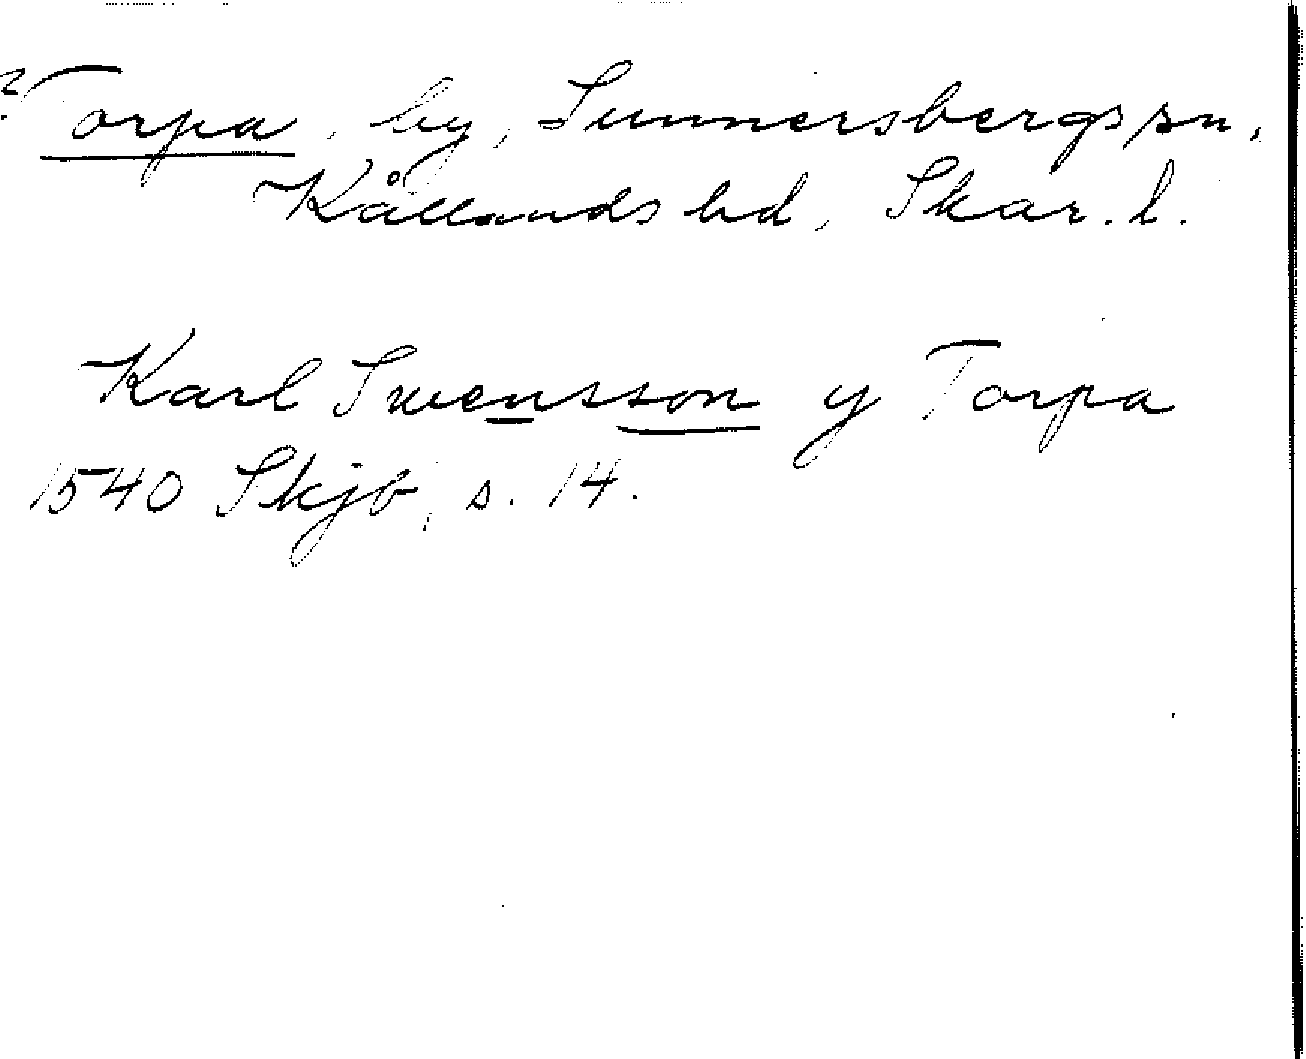 ? Torpa, by, Sunnersbergs sn,
Kållands hd, Skar. l.
Karl Swensson y Torpa
1540 Skjb, s. 14.